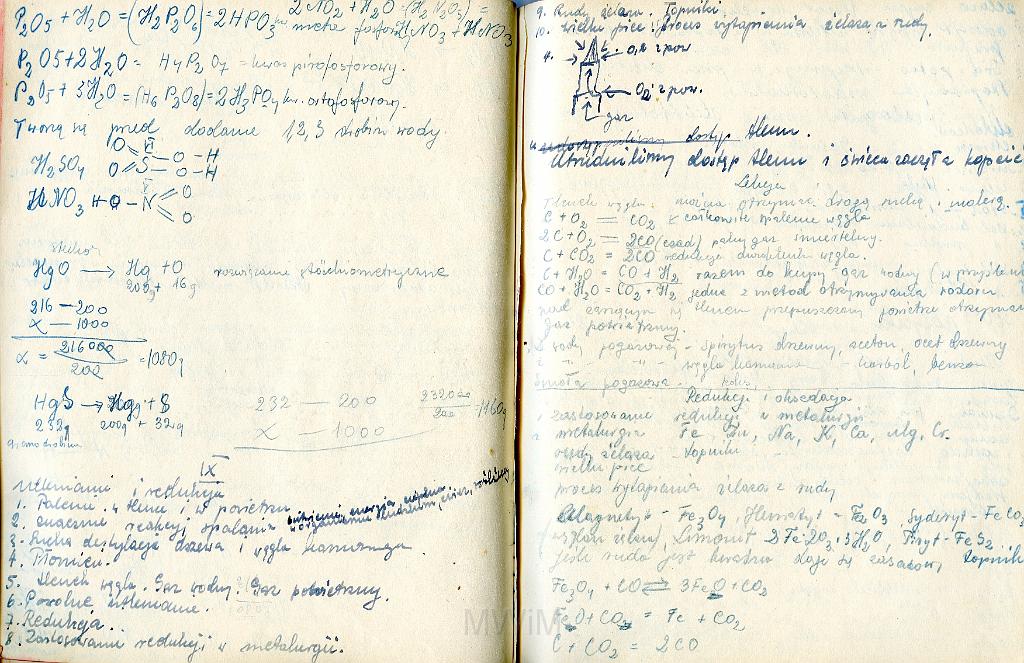 P2O5 + H2O = (H2P2O6) = 2HPO3 meta fosfor.
2NO2 + H2O = (H2N2O5) = HNO2 + HNO3
P2O5 + 2H2O = H4P2O7 = kwas pirofosforowy.
P2O5 + 3H2O = (H6P2O8) = 2H3PO4 kw. ortofosforowy.
Tworzą się przez dodanie 1,2,3 drobin wody.
H2SO4 O = S - O - H
O = S - O - H
HNO3 H-O-N = O
= O
HgO → Hg + O rozwiązanie stöchiometryczne
200g + 16g
216 - 200
x - 1000
x = 216000 / 200 = 1080g
HgS → Hg + S
232g 200g + 32g
gramodrobina
232 - 200
x - 1000
232000 / 200 = 1160g
IX
Utlenianie i redukcja
1. Palenie w tlenie i w powietrzu
2. znaczenie reakcji spalania
3. Sucha destylacja drzewa i węgla kamiennego
4. Płomień.
5. Tlenek węgla. Gaz wodny. Gaz powietrzny.
6. Powolne utlenianie.
7. Redukcja.
8. Zastosowanie redukcji w metalurgii.
9. Rudy żelaza. Topniki
10. Wielki piec i proces wytapiania żelaza z rudy.
O2 z pow.
O2 z pow.
gaz
dostęp tlenu.
Utrudniliśmy dostęp tlenu i świeca zaczęła kopcić
Lekcja
Tlenek węgla można otrzymać drogą suchą i mokrą.
C + O2 = CO2 całkowite spalenie węgla
2C + O2 = 2CO (czad) palny gaz śmiertelny.
C + CO2 = 2CO redukcja dwutlenku węgla.
C + H2O = CO + H2 razem do kupy gaz wodny
CO + H2O = CO2 + H2 jedna z metod otrzymywania wodoru
nad żarzącym się przepuszczamy powietrze otrzymamy
gaz powietrzny.
wody pogazowej - spirytus drzewny, aceton, ocet drzewny
" " węgla kamiennego - karbol, benzen
Smoła pogazowa. koks.
Redukcja i oksydacja
zastosowanie redukcji w metalurgii
metalurgia Fe, Zn, Na, K, Ca, Mg, Cr.
rudy żelaza - topniki
wielki piec
proces wytapiania żelaza z rudy
Magnetyt - Fe3O4 Hematyt - Fe2O3, Syderyt - FeCO3
węglan żelaza, Limonit 2Fe2O3·3H2O, Piryt - FeS2
jeśli ruda jest kwaśna daje się zasadowy topnik
Fe3O4 + CO ⇌ 3FeO + CO2
FeO + CO = Fe + CO2
C + CO2 = 2CO
MWiM